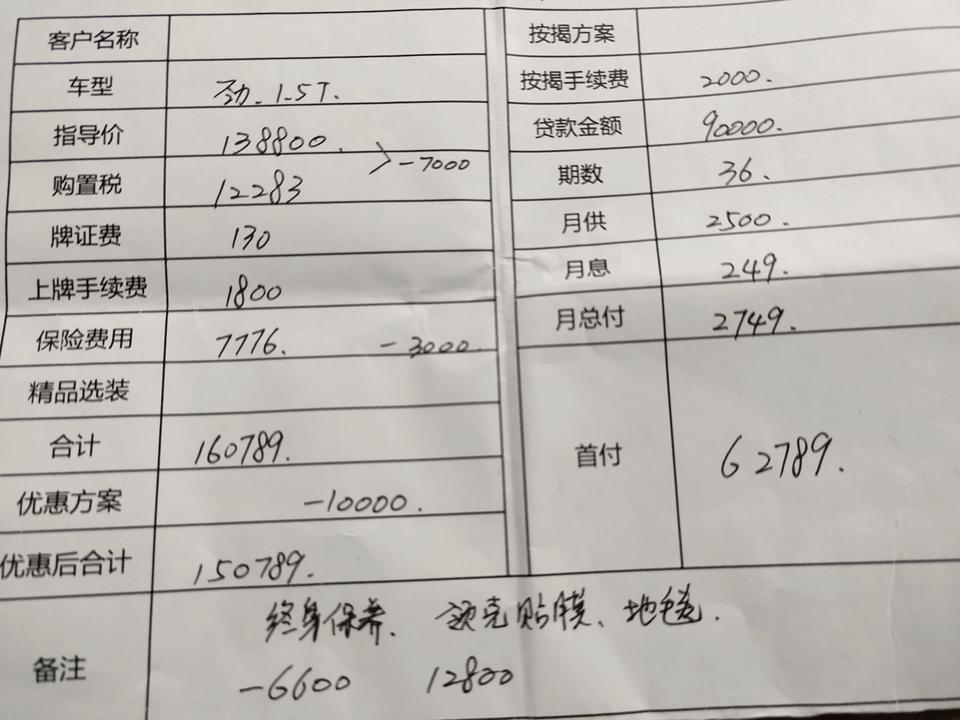 客户名称
车型 劲.1.5T.
指导价 138800.
>-7000
购置税 12283
牌证费 130
上牌手续费 1800
保险费用 7776. -3000.
精品选装
合计 160789.
优惠方案 -10000.
优惠后合计 150789.
按揭方案
按揭手续费 2000.
贷款金额 90000.
期数 36.
月供 2500.
月息 249.
月总付 2749.
首付 62789.
备注 终身保养、领克贴膜、地毯.
-6600 12800